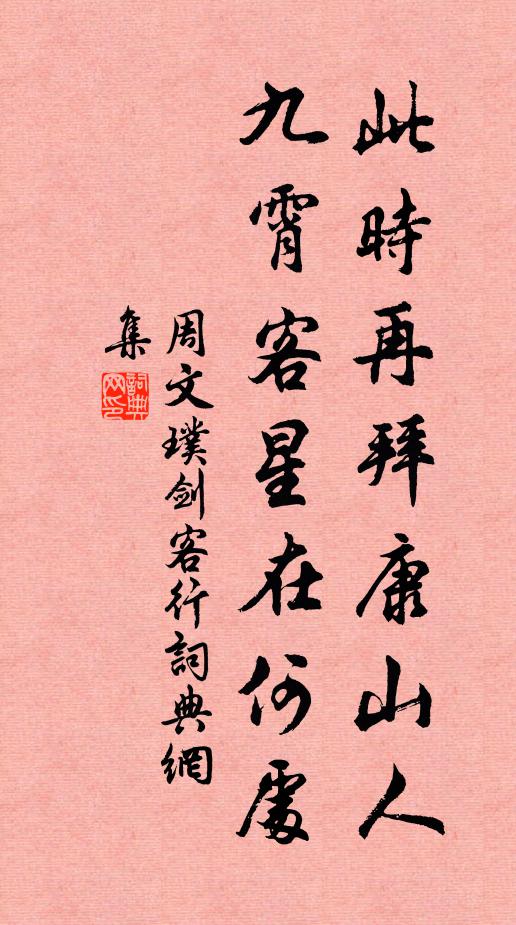 此時再拜康山人
九霄客星在何處
周文璞劍客行詞典網
集
詞典網印